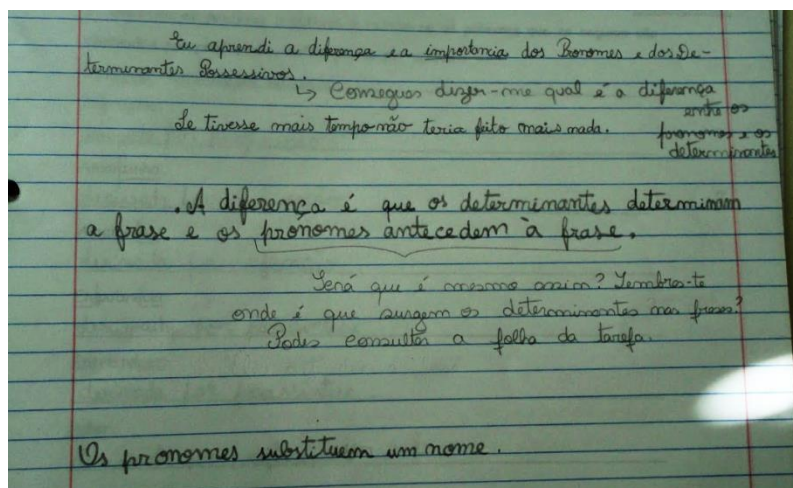 Eu aprendi a diferença e a importancia dos Pronomes e dos De-
terminantes Possessivos.
↳ Consegues dizer-me qual é a diferença
entre os
pronomes e os
determinantes
Se tivesse mais tempo não teria feito mais nada.
. A diferença é que os determinantes determinam
a frase e os pronomes antecedem à frase.
Será que é mesmo assim? Lembras-te
onde é que surgem os determinantes nas frases?
Podes consultar a folha da tarefa.
Os pronomes substituem um nome.